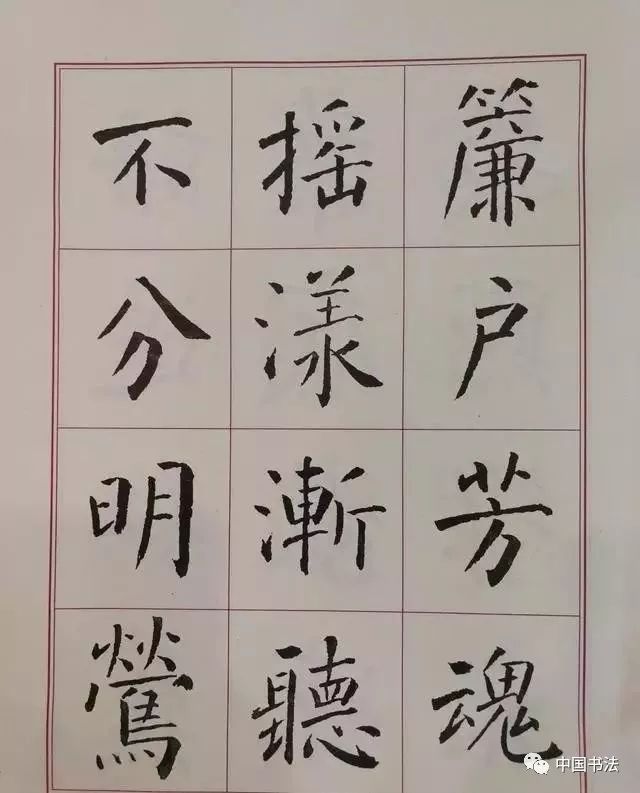 簾户芳魂
摇漾漸聽
不分明鶯
中国书法